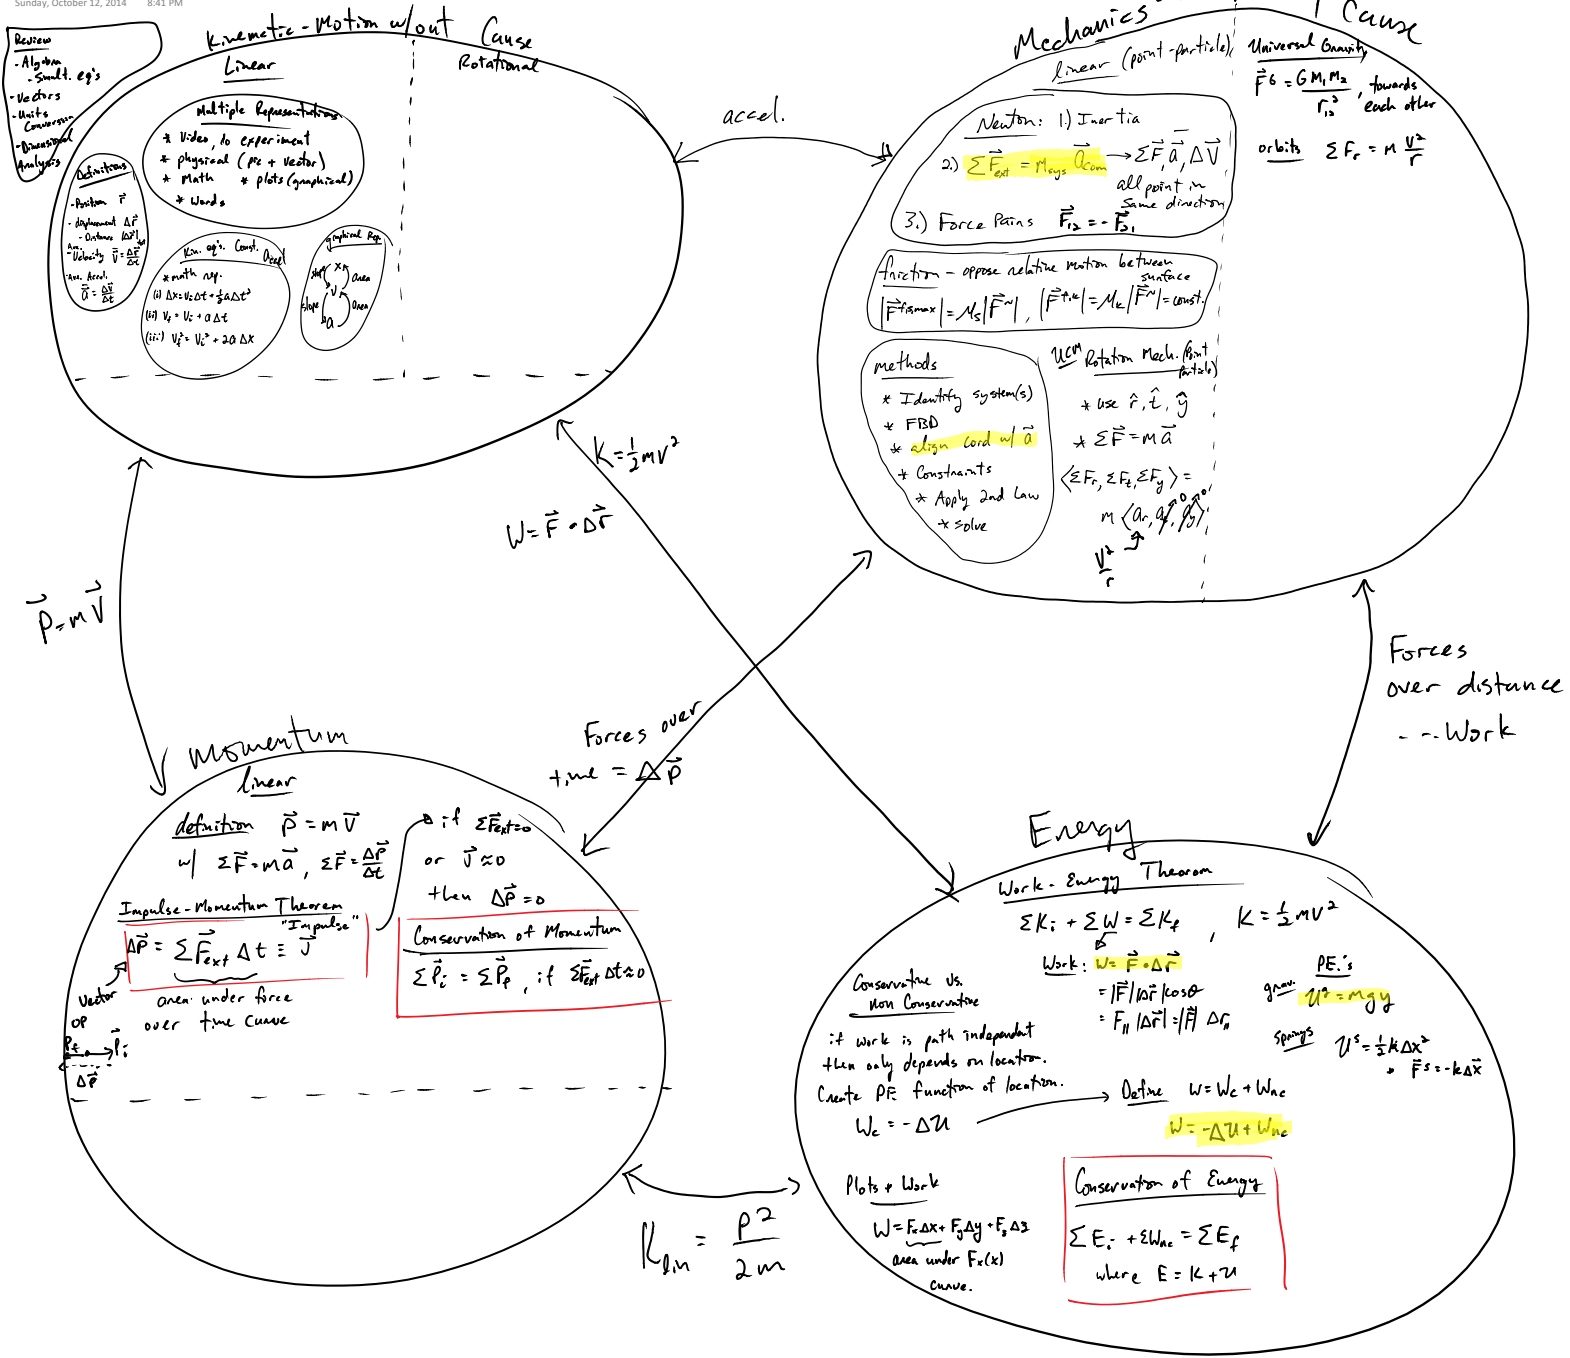 Sunday, October 12, 2014 8:41 PM
Review
- Algebra
- Simult. eq's
- Vectors
- Units
Conversion
- Dimensional
Analysis
Kinematic - Motion w/out Cause
Linear
Rotational
Multiple Representations
* Video, do experiment
* physical (pic + vector)
* Math * plots (graphical)
* Words
Definitions
- Position r⃗
- displacement Δr⃗
- Distance |Δr⃗|
Ave.
- Velocity v⃗ = Δr⃗/Δt
- Ave. Accel.
a⃗ = Δv⃗/Δt
Kin. eq's. Const. accel
* math rep.
(i) Δx = Vᵢ Δt + ½ a Δt²
(ii) V_f = Vᵢ + a Δt
(iii) V_f² = Vᵢ² + 2a Δx
graphical Rep.
slope x area
v
slope area
a
accel.
Mechanics - Cause
linear (point-particle)
Newton: 1.) Inertia
2.) ΣF⃗_ext = m_sys a⃗_com → ΣF⃗, a⃗, ΔV⃗
all point in
same direction
3.) Force Pairs F⃗₁₂ = -F⃗₂₁
friction - oppose relative motion between
surface
|F⃗^fs,max| = μ_s |F⃗^N|, |F⃗^f,k| = μ_k |F⃗^N| = const.
methods
* Identify system(s)
* FBD
* align cord w/ a⃗
* Constraints
* Apply 2nd Law
* solve
UCM Rotation Mech. (Point
particle)
* use r̂, t̂, ŷ
* ΣF⃗ = m a⃗
⟨ΣF_r, ΣF_t, ΣF_y⟩ =
m ⟨a_r, a_t, a_y⟩
0 0
V²/r
Universal Gravity
F⃗^G = G M₁ M₂ / r₁₂², towards
each other
orbits ΣF_r = m V²/r
K = ½ mv²
W = F⃗ • Δr⃗
P⃗ = m V⃗
Forces over
time = ΔP⃗
Forces
over distance
- - - Work
Momentum
linear
definition P⃗ = m V⃗
w/ ΣF⃗ = m a⃗, ΣF⃗ = ΔP⃗/Δt
if ΣF⃗_ext = 0
or J⃗ ≈ 0
then ΔP⃗ = 0
Impulse - Momentum Theorem
"Impulse"
ΔP⃗ = ΣF⃗_ext Δt ≡ J⃗
area under force
over time curve
Vector
OP
P⃗_f P⃗ᵢ
ΔP⃗
Conservation of Momentum
ΣP⃗ᵢ = ΣP⃗_f, if ΣF⃗_ext Δt ≈ 0
K_lin = P²/2m
Energy
Work - Energy Theorem
ΣKᵢ + ΣW = ΣK_f, K = ½ mv²
Work: W = F⃗ • Δr⃗
= |F⃗| |Δr⃗| cosθ
= F_∥ |Δr⃗| = |F⃗| Δr_∥
PE.'s
grav. U^g = mgy
springs U^s = ½ k Δx²
• F⃗^s = -kΔx⃗
Conservative vs.
non Conservative
if work is path independent
then only depends on location.
Create PE function of location.
W_c = -ΔU
Define W = W_c + W_nc
W = -ΔU + W_nc
Plots + Work
W = F_x Δx + F_y Δy + F_z Δz
area under F_x(x)
curve.
Conservation of Energy
ΣEᵢ + ΣW_nc = ΣE_f
where E = K + U